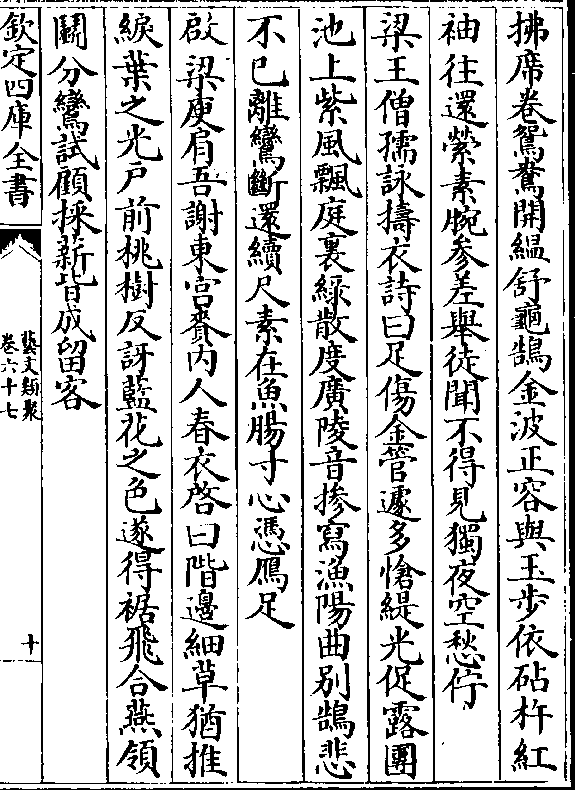 拂席卷鴛鴦開緼舒龜鵠金波正容與玉步依砧杵紅
袖往還縈素腕參差舉徒聞不得見獨夜空愁佇
梁王僧孺詠擣衣詩曰足傷金管遽多愴緹光促露團
池上紫風飄庭裏綠散度廣陵音摻寫漁陽曲别鵠悲
不已離鸞斷還續尺素在魚腸寸心憑鴈足
啟梁庾肩吾謝東宫賚内人春衣啓曰階邊細草猶推
綟葉之光戸前桃樹反訝藍花之色遂得裾飛合燕領
鬭分鸞試顧採薪皆成留客
欽定四庫全書
藝文類聚
卷六十七
十